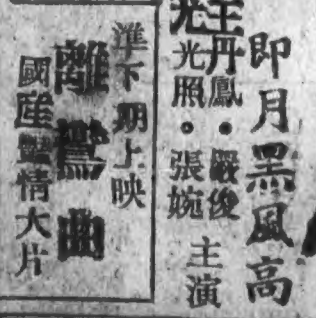 即月黑風高
王丹鳳・嚴俊
光照・張婉
主演
準下期上映
離鸞曲
國產豔情大片